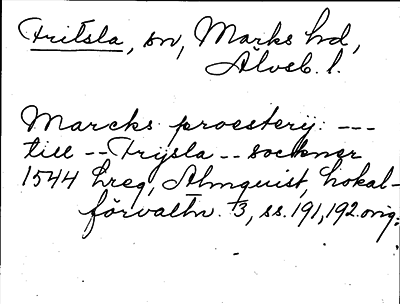 Fritsla, sn, Marks hd,
Älvsb. l.
Marcks proestery: ---
till -- Frijsla -- sockner
1544 hreg, Almquist, Lokal-
förvaltn. 3, ss. 191, 192. orig.